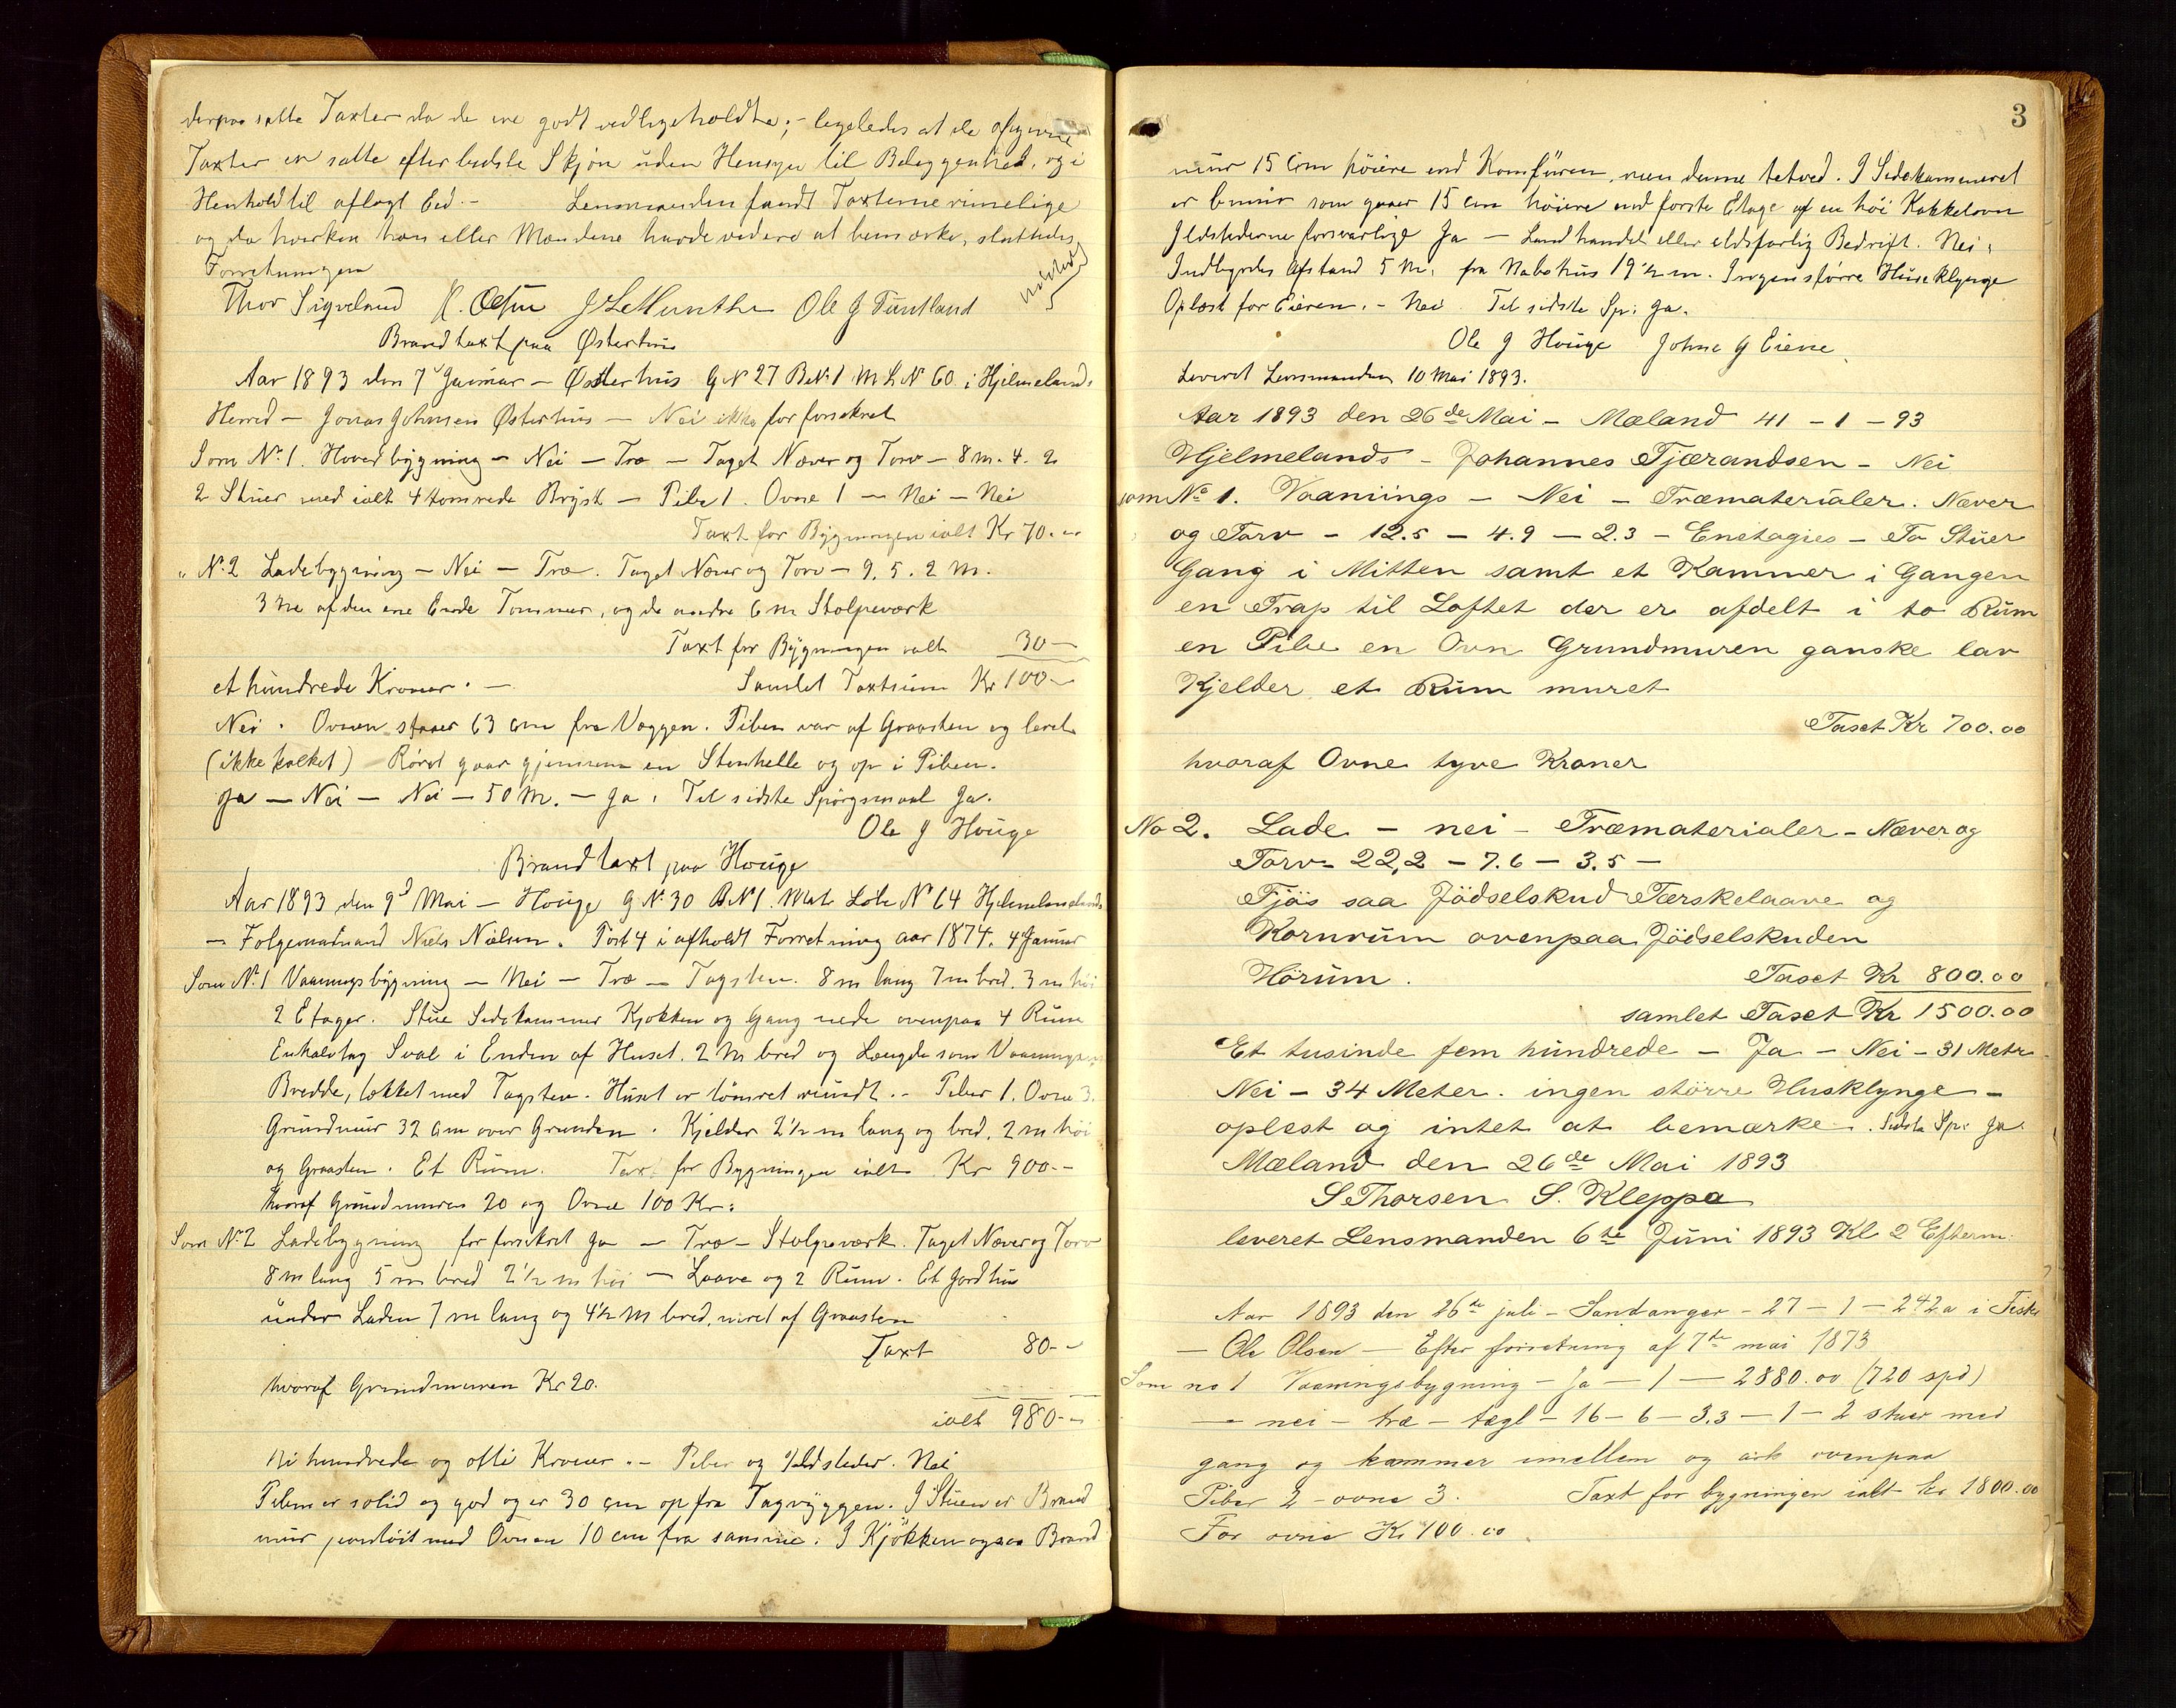 derpaa satte Taxter da de ere godt vedligeholdte; - ligeledes at de afgivne
Taxter er satte efter bedste Skjøn uden Hensyn til Beliggenhed, og i
Henhold til aflagt Ed. - Lensmanden fandt Taxterne rimelige
og da hverken han eller Mændene havde videre at bemærke, sluttedes
Forretningen
Thor Sigvelund Ole J Funtland
Brandtaxt paa Østerhus
Aar 1893 den 7 Januar - Østerhus G N 27 B N 1 M L N 60 i Hjelmelands
Herred - Jonas Johnsen Østerhus - Nei ikke før forsekret
Som No 1. Hovedbygning - Nei - Træ - Taget Næver og Torv - 8 m. 4. 2
2 Stuer med ialt 4 tomrede Bryst - Pibe 1. Ovne 1 - Nei - Nei
Taxt for Bygningen ialt Kr 70.-
" No 2 Ladebygning - Nei - Træ. Taget Næver og Torv - 9. 5. 2 M.
3 m af den ene Ende Tommer, og de andre 6 m Stolpeværk
Taxt for Bygningen ialt 30 -
et hundrede Kroner. - Samlet Taxtsum Kr 100 -
Nei. Ovnen staaer 63 cm fra Væggen. Piben var af Graasten og leret
(ikke kalket) Røret gaar gjennem en Stenhelle og op i Piben.
Ja - Nei - Nei - 50 M. - Ja. Til sidste Spørgsmaal Ja.
Ole J Houge
Brandtaxt paa Houge
Aar 1893 den 9 Mai - Houge G N 30 B N 1. Mat Løbe N 64 Hjelmelands
- Folgemand Niels Nielsen. Post 4 i afholdt Forretning aar 1874. 4 Januar
Som N 1 Vaaningsbygning - Nei - Træ - Tagsten. 8 m lang 7 m bred. 3 m høi
2 Etager. Stue Sidekammer Kjøkken og Gang nede ovenpaa 4 Rum
Enkeltag Sval i Enden af Huset. 2 m bred og Længde som
Bredde, tækket med Tagsten. Huset er tømret rundt. - Piber 1. Ovne 3.
Grundmur 32 cm over Grunden. Kjelder 2 1/2 m lang og bred, 2 m høi
og Graasten. Et Rum. Taxt for Bygningen ialt Kr 900 -
hvoraf Grundmuren 20 og Ovne 100 Kr.
Som No 2 Ladebygning før forsekret Ja - Træ - Stolpeværk. Taget Næver og Torv
8 m lang 5 m bred 2 1/2 m høi - Laave og 2 Rum. Et Jordhus
under Laden 7 m lang og 4 1/2 M bred, muret af Graasten
Taxt 80 -
hvoraf Grundmuren Kr 20.
ialt 980 -
Ni hundrede og otti Kroner. - Piber og Ildsteder. Nei
Piben er solid og god og er 30 cm op fra Tagryggen. I Stuen er Brand
mur forsvarlig med Ovnen 10 cm fra samme. I Kjøkken ogsaa Brand
3
mur 15 cm høiere end Komfuren, men denne tætved. I Sidekammeret
er bmur som gaaer 15 cm høiere end første Etage af en høi Kakkelovn
Ildstederne forsvarlige Ja - Landhandel eller ildsfarlig Bedrift. Nei.
Indbyrdes Afstand 5 M. fra Nabohus 19 1/2 m. Ingen større Huseklynge
Oplæst for Eieren. - Nei Til sidste Sp: Ja.
Ole J Houge Johne J Eiene
Leveret Lensmanden 10 Mai 1893.
Aar 1893 den 26de Mai - Mæland 41 - 1 - 93
Hjelmelands - Johannes Tjærandsen - Nei
som No 1. Vaanings - Nei - Træmaterialer. Næver
og Torv - 12.5 - 4.9 - 2.3 - Enetagies - To Stuer
Gang i Mitten samt et Kammer i Gangen
en Trap til Loftet der er afdelt i to Rum
en Pibe en Ovn Grundmuren ganske lav
Kjelder et Rum muret
Taxt Kr 700.00
hvoraf Ovne tyve Kroner
No 2. Lade - nei - Træmaterialer - Næver og
Torv 22,2 - 7.6 - 3.5 -
Fjös saa Jödselskud Tærskelaave og
Kornrum ovenpaa Jödselskuden
Hörum. Taxt Kr 800.00
samlet Taxt Kr 1500.00
Et tusinde fem hundrede - Ja - Nei - 31 Metr
Nei - 34 Meter. ingen större Husklynge -
oplæst og intet at bemærke. Sidste Sp: Ja
Mæland den 26de Mai 1893
S Thorsen S. Kleppa
leveret Lensmanden 6te Juni 1893 Kl 2 Efterm.
Aar 1893 den 26de juli - Sandanger - 27 - 1 - 242a i Fister
- Ole Olsen - Efter forretning af 7de mai 1873
Som no 1 Vaaningsbygning - Ja - 1 - 2880.00 (720 spd)
- nei - træ - tægl - 16 - 6 - 3,3 - 1 - 2 stuer med
gang og kammer imellem og ark ovenpaa
Piber 2 - ovne 3. Taxt for bygningen ialt kr 1800.00
For ovne Kr 100.00